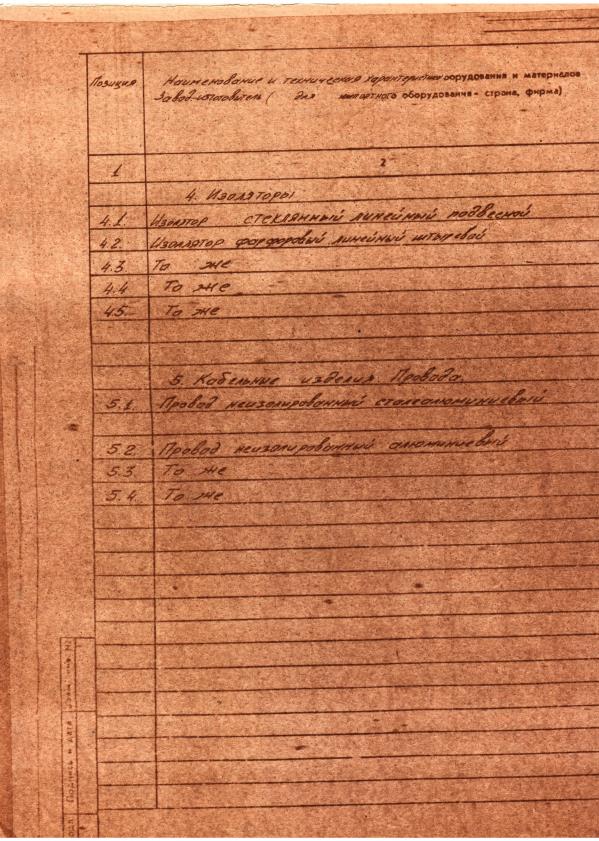 Позиция
Наименование и техническая характеристика оборудования и материалов
Завод-изготовитель ( для импортного оборудования - страна, фирма)
1
2
4. Изоляторы
4.1. Изолятор стеклянный линейный подвесной
4.2. Изолятор фарфоровый линейный штыревой
4.3 То же
4.4 То же
4.5. То же
5. Кабельные изделия Провода.
5.1. Провод неизолированный сталеалюминиевый
5.2. Провод неизолированный алюминиевый
5.3. То же
5.4. То же
Подпись и дата